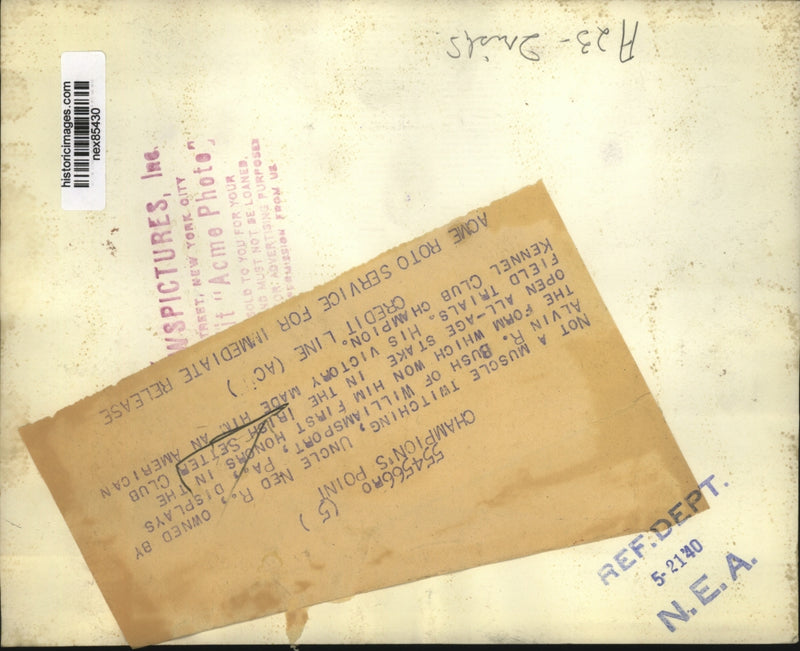 historicimages.com
nex85430
A23-
WSPICTURES, Inc.
TREET, NEW YORK CITY
it "Acme Photo"
OLD TO YOU FOR YOUR
ND MUST NOT BE LOANED,
OR ADVERTISING PURPOSES
ERMISSION FROM US
554566RO (F)
CHAMPION'S POINT
NOT A MUSCLE TWITCHING, UNCLE NED R., OWNED BY
ALVIN R. BUSH OF WILLIAMSPORT, PA., DISPLAYS
THE FORM WHICH WON HIM FIRST HONORS IN THE
OPEN ALL-AGE STAKE IN THE IRISH SETTER CLUB
FIELD TRIALS. HIS VICTORY MADE HIM AN AMERICAN
KENNEL CLUB CHAMPION.
CREDIT LINE (AC )
ACME ROTO SERVICE FOR IMMEDIATE RELEASE
REF. DEPT.
5-21'40
N.E.A.